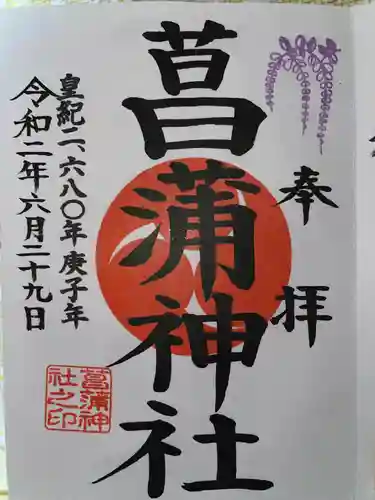 奉拝
菖蒲神社
皇紀二、六八〇年庚子年
令和二年六月二十九日
菖蒲神
社之印